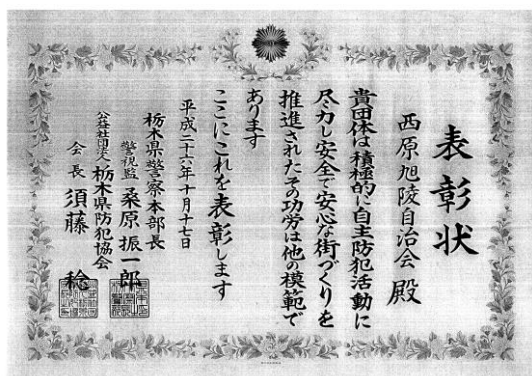 表彰状
西原旭陵自治会 殿
貴団体は積極的に自主防犯活動に
尽力し安全で安心な街づくりを
推進されたその功労は他の模範で
あります
ここにこれを表彰します
平成二十六年十月十七日
栃木県警察本部長
警視監 桑原振一郎
公益社団法人 栃木県防犯協会
会長 須藤 稔